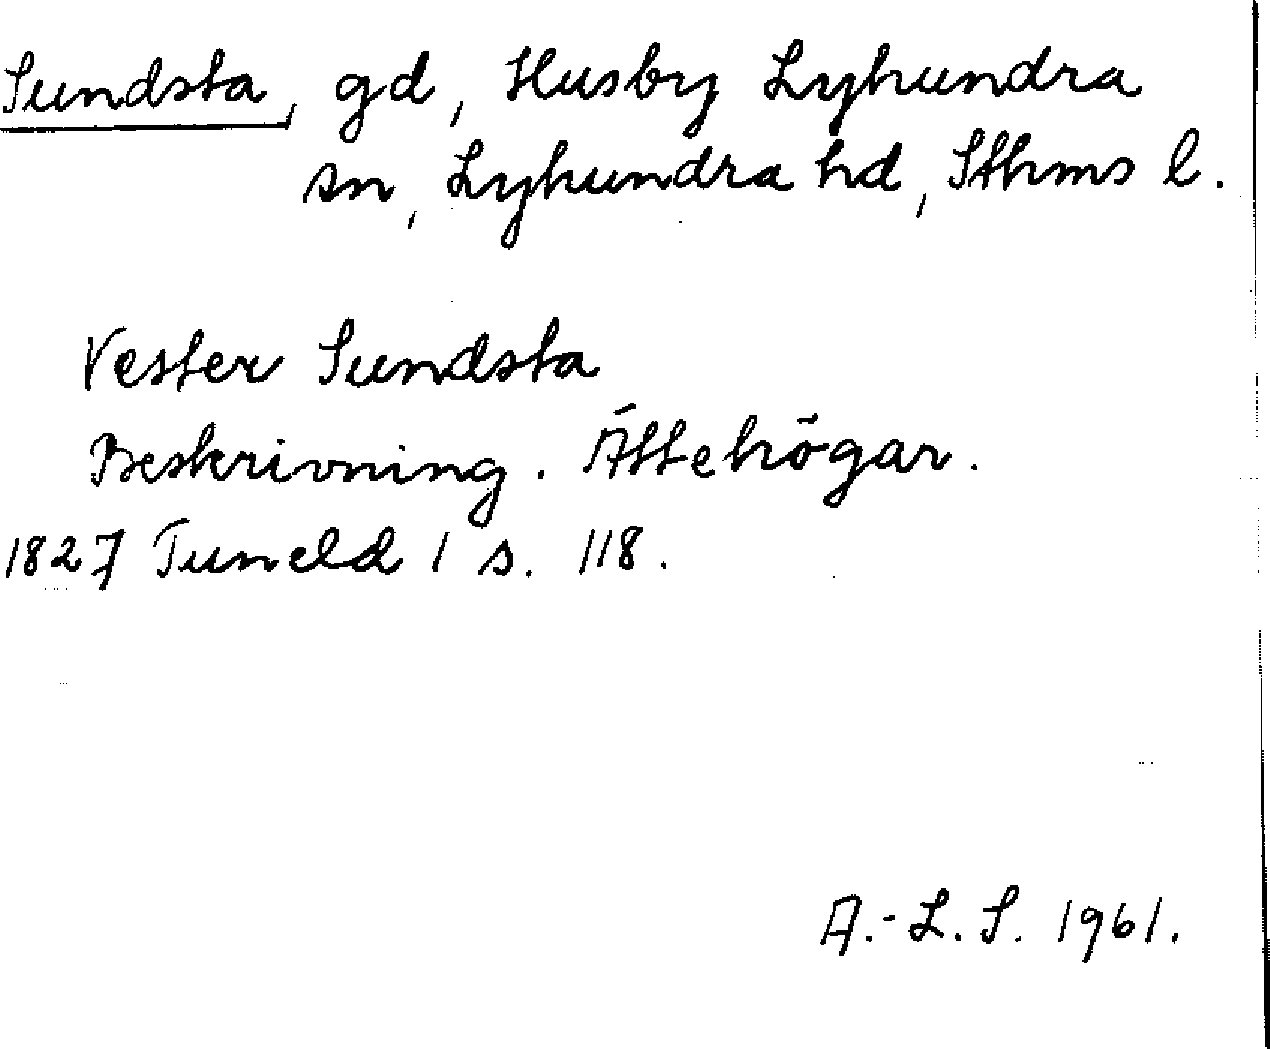 Sundsta, gd, Husby Lyhundra
sn, Lyhundra hd, Sthms l.
Vester Sundsta
Beskrivning. Ättehögar.
1827 Tuneld 1 s. 118.
A.-L. S. 1961.